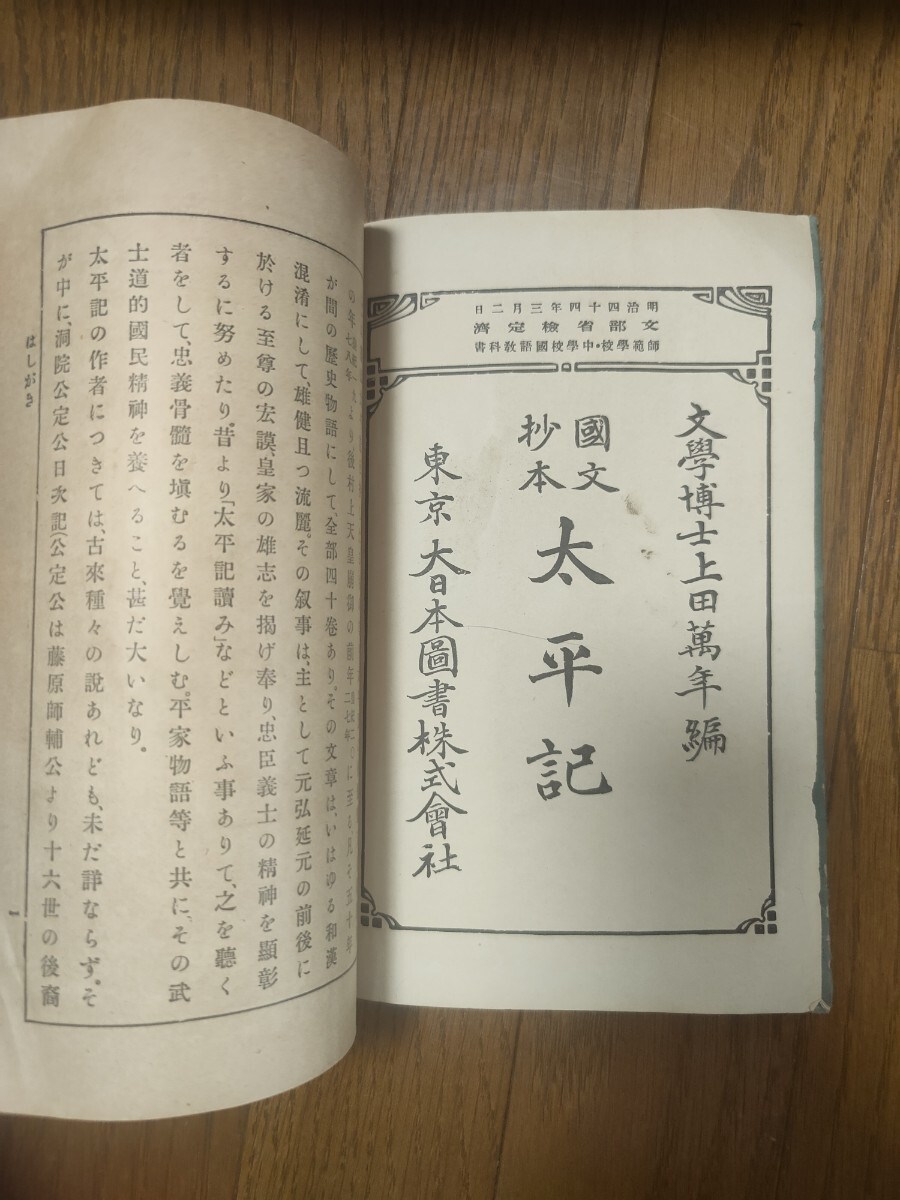 明治四十四年三月二日
文部省檢定濟
師範學校・中學校國語教科書
文學博士上田萬年編
國文
抄本
太平記
東京 大日本圖書株式會社
より後村上天皇崩御の前年
に至る、凡そ五十年
が間の歴史物語にして、全部四十卷あり。その文章は、いはゆる和漢
混淆にして、雄健且つ流麗。その叙事は、主として元弘延元の前後に
於ける至尊の宏謨、皇家の雄志を揭げ奉り、忠臣義士の精神を顯彰
するに努めたり。昔より「太平記讀み」などといふ事ありて、之を聽く
者をして、忠義骨髓を塡むるを覺えしむ。平家物語等と共に、その武
士道的國民精神を養へること、甚だ大いなり。
太平記の作者につきては、古來種々の說あれども、未だ詳ならず。そ
が中に、洞院公定公日次記(公定公は藤原師輔公より十六世の後裔
はしがき
一